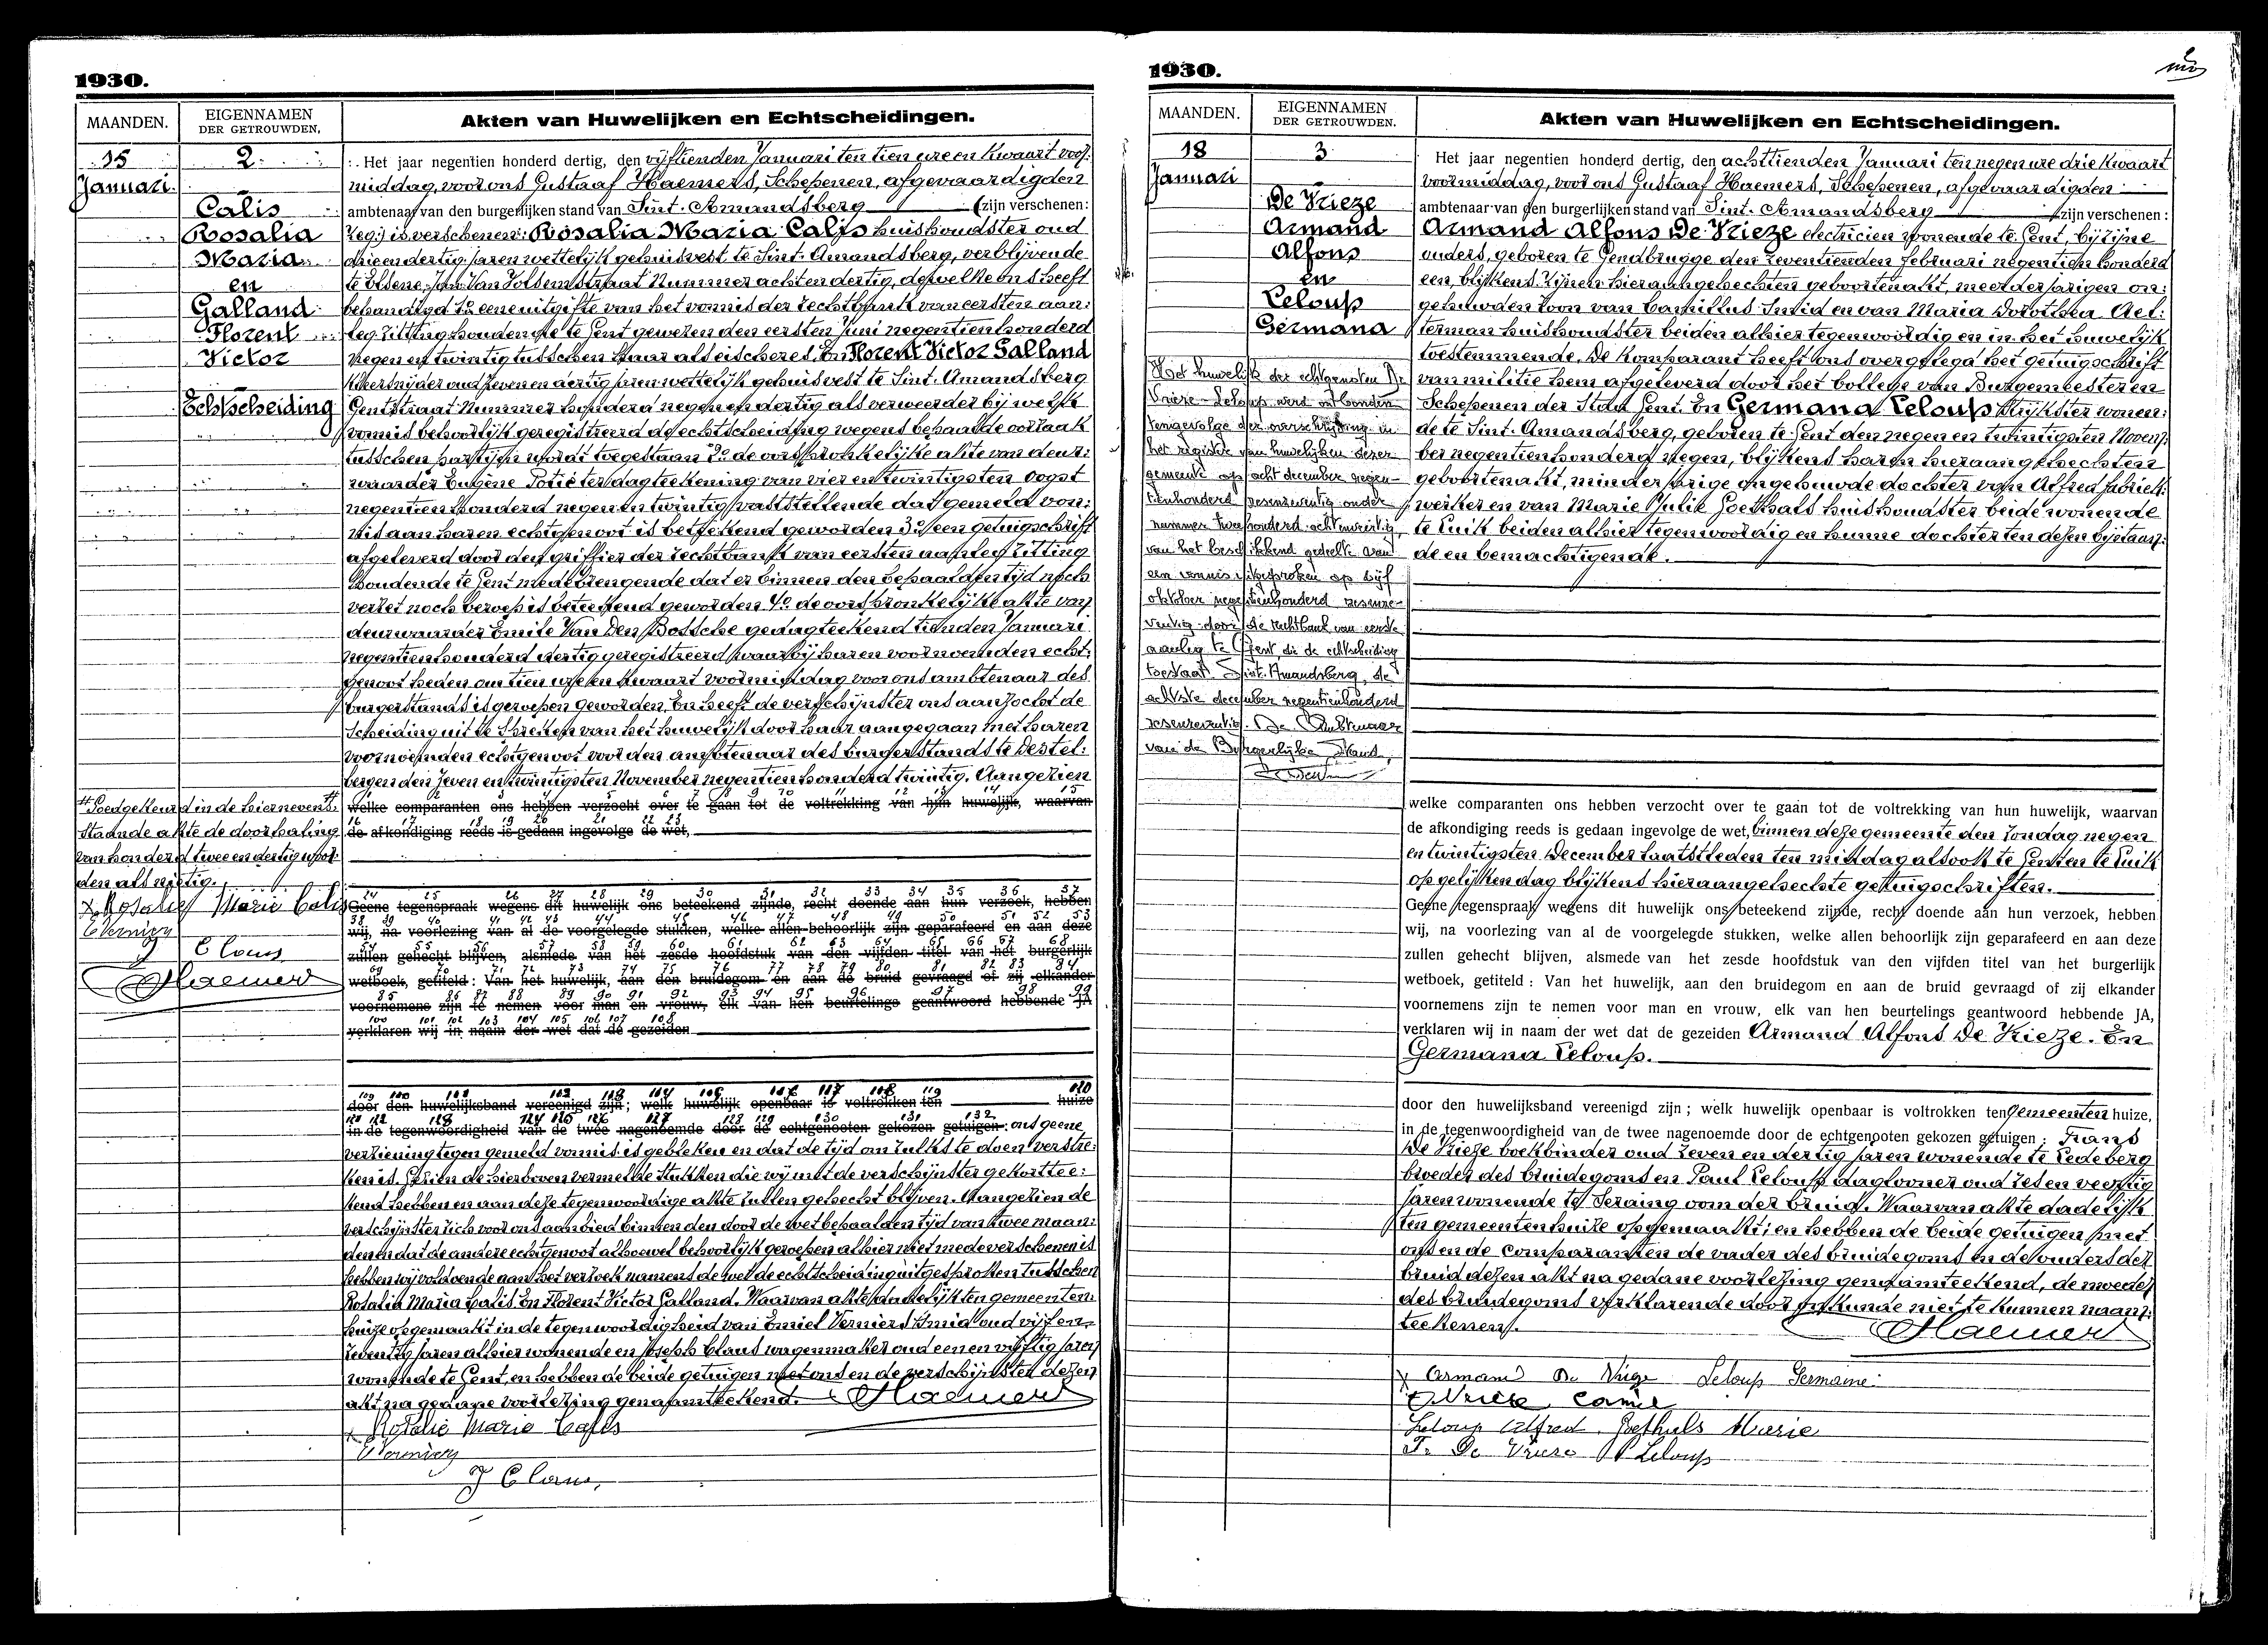 1930.
MAANDEN.
EIGENNAMEN
DER GETROUWDEN.
Akten van Huwelijken en Echtscheidingen.
15
Januari.
2.
Calis
Rosalia
Maria
en
Galland
Florent
Victor
Echtscheiding
Het jaar negentien honderd dertig, den vijftienden Januari ten tien ure en kwaart voor-
middag, voor ons Gustaaf Haemers, Schepenen, afgevaardigden
ambtenaar van den burgerlijken stand van Sint-Amandsberg zijn verschenen:
is verschenen: Rosalia Maria Calis huishoudster oud
drie en dertig jaren wettelijk gehuisvest te Sint-Amandsberg, verblijvende
te Elsene, Van Volsemstraat Nummer acht en dertig, dewelke ons heeft
behandigd 1º eene uitgifte van het vonnis der rechtbank van eersten aan-
leg zitting houdende te Gent gewezen den eersten Juni negentien honderd
negen en twintig tusschen haar als eischeres, En Florent Victor Galland
oud zeven en dertig jaren wettelijk gehuisvest te Sint-Amandsberg
Gentstraat Nummer honderd negen en dertig als verweerder bij welk
vonnis behoorlijk geregistreerd de echtscheiding wegens bepaalde oorzaak
tusschen partijen wordt toegestaan 2º de oorspronkelijke akte van deur-
waarder Eugène Potié ter dagteekening van vier en twintigsten oogst
negentien honderd negen en twintig vaststellende dat gemeld von-
nis aan haren echtgenoot is beteekend geworden 3º een getuigschrift
afgeleverd door den griffier der rechtbank van eersten aanleg zitting
houdende te Gent medebrengende dat er binnen den bepaalden tijd noch
verzet noch beroep is beteekend geworden 4º de oorspronkelijke akte van
deurwaarder Emile Van Den Bossche gedagteekend tienden Januari
negentien honderd dertig geregistreerd waarbij haren voornoemden echt-
genoot heden om tien ure en kwaart voormiddag voor ons ambtenaar des
burgerstands is geroepen geworden, En heeft de verschijnster ons aanzocht de
scheiding uit te spreken van het huwelijk door haar aangegaan met haren
voornoemden echtgenoot voor den ambtenaar des burgerstands te Destel-
bergen den zeven en twintigsten November negentien honderd twintig. Aangezien
Goedgekeurd in de hiernevens-
staande akte de doorhaling
van honderd twee en dertig woor-
den als nietig.
Rosalie Marie Calis
E Vernier
J Claus
GHaemers
welke comparanten ons hebben verzocht over te gaan tot de voltrekking van hun huwelijk, waarvan
de afkondiging reeds is gedaan ingevolge de wet,
Geene tegenspraak wegens dit huwelijk ons beteekend zijnde, recht doende aan hun verzoek, hebben
wij, na voorlezing van al de voorgelegde stukken, welke allen behoorlijk zijn geparafeerd en aan deze
zullen gehecht blijven, alsmede van het zesde hoofdstuk van den vijfden titel van het burgerlijk
wetboek, getiteld: Van het huwelijk, aan den bruidegom en aan de bruid gevraagd of zij elkander
voornemens zijn te nemen voor man en vrouw, elk van hen beurtelings geantwoord hebbende JA
verklaren wij in naam der wet dat de gezeiden
door den huwelijksband vereenigd zijn; welk huwelijk openbaar is voltrokken ten huize
in de tegenwoordigheid van de twee nagenoemde door de echtgenooten gekozen getuigen: ons geene
verziening tegen gemeld vonnis is gebleken en dat de tijd om zulks te doen verstre-
ken is. Gezien de hierboven vermelde stukken die wij met de verschijnster gekorttee-
kend hebben en aan deze tegenwoordige akte zullen gehecht blijven. Aangezien de
verschijnster zich voor ons aanbied binnen den door de wet bepaalden tijd van twee maan-
den en dat de andere echtgenoot alhoewel behoorlijk geroepen alhier niet mede verschenen is
hebben wij voldoende aan het verzoek namens de wet de echtscheiding uitgesproken tusschen
Rosalia Maria Calis En Florent Victor Galland. Waarvan akte dadelijk ten gemeenten
huize opgemaakt in de tegenwoordigheid van Emiel Verniers smid oud vijf en
zeventig jaren alhier wonende en Joseph Claus wagenmaker oud een en vijftig jaren
wonende te Gent, en hebben de beide getuigen met ons en de verschijnster dezen
akt na gedane voorlezing genaamteekend. GHaemers
Rosalie Marie Calis
E Vernier
J Claus
1930.
MAANDEN.
EIGENNAMEN
DER GETROUWDEN.
Akten van Huwelijken en Echtscheidingen.
18
Januari
3
De Vrieze
Armand
Alfons
en
Leloup
Germana
Het jaar negentien honderd dertig, den achttienden Januari ten negen ure drie kwaart
voormiddag, voor ons Gustaaf Haemers, Schepenen, afgevaardigden
ambtenaar van den burgerlijken stand van Sint-Amandsberg zijn verschenen:
Armand Alfons De Vrieze electricien wonende te Gent, bij zijne
ouders, geboren te Gendbrugge den zeventienden Februari negentien honderd
een, blijkens zijnen hieraangehechten geboortenakt, meerderjarigen on-
gehuwden zoon van Camillus Smid en van Maria Dorothea Ael-
terman huishoudster beiden alhier tegenwoordig en in het huwelijk
toestemmende. De komparant heeft ons overgelegd het getuigschrift
van militie hem afgeleverd door het College van Burgemeester en
Schepenen der Stad Gent. En Germana Leloup strijkster wonen-
de te Sint-Amandsberg, geboren te Gent den negen en twintigsten Novem-
ber negentien honderd negen, blijkens haren hieraangehechten
geboortenakt, minderjarige ongehuwde dochter van Alfred fabriek-
werker en van Marie Julie Goethals huishoudster beide wonende
te Luik beiden alhier tegenwoordig en hunne dochter ten dezen bijstaan-
de en bemachtigende.
Het huwelijk der echtgenoten De
Vrieze-Leloup werd ontbonden
tengevolge der overschrijving in
het register van huwelijken dezer
gemeente op acht december negen-
tienhonderd zesenzeventig onder
nummer tweehonderd achtenveertig,
van het beschikkend gedeelte van
een vonnis uitgesproken op vijf
oktober negentienhonderd zesenze-
ventig door de rechtbank van eerste
aanleg te Gent, die de echtscheiding
toestaat. Sint-Amandsberg, de
achtste december negentienhonderd
zesenzeventig. De Ambtenaar
van de Burgerlijke Stand,
welke comparanten ons hebben verzocht over te gaan tot de voltrekking van hun huwelijk, waarvan
de afkondiging reeds is gedaan ingevolge de wet, binnen deze gemeente den zondag negen
en twintigsten December laatstleden ten middag alsook te Gent en te Luik
op gelijken dag blijkens hieraangehechte getuigschriften.
Geene tegenspraak wegens dit huwelijk ons beteekend zijnde, recht doende aan hun verzoek, hebben
wij, na voorlezing van al de voorgelegde stukken, welke allen behoorlijk zijn geparafeerd en aan deze
zullen gehecht blijven, alsmede van het zesde hoofdstuk van den vijfden titel van het burgerlijk
wetboek, getiteld: Van het huwelijk, aan den bruidegom en aan de bruid gevraagd of zij elkander
voornemens zijn te nemen voor man en vrouw, elk van hen beurtelings geantwoord hebbende JA,
verklaren wij in naam der wet dat de gezeiden Armand Alfons De Vrieze. En
Germana Leloup.
door den huwelijksband vereenigd zijn; welk huwelijk openbaar is voltrokken ten Gemeenten huize,
in de tegenwoordigheid van de twee nagenoemde door de echtgenooten gekozen getuigen: Frans
De Vrieze boekbinder oud zeven en dertig jaren wonende te Ledeberg
broeder des bruidegoms en Paul Leloup dagloner oud zes en veertig
jaren wonende te Seraing oom der bruid. Waarvan akte dadelijk
ten gemeentenhuize opgemaakt; en hebben de beide getuigen met
ons en de comparanten de vader des bruidegoms en de ouders der
bruid dezen akt na gedane voorlezing genaamteekend, de moeder
des bruidegoms verklarende door onkunde niet te kunnen naam-
teekenen.
GHaemers
Armand De Vrieze Leloup Germaine
DeVrieze Camie
Leloup Alfred Goethals Marie
F. De Vrieze P Leloup